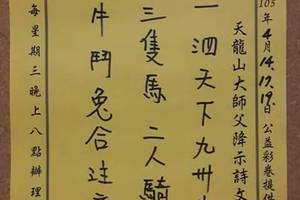 105年4月14.17.19.日公益彩卷提件
天龍山大師父降示詩文
一泗天下九卅
三隻馬二人騎
牛鬥兔合註
每星期三晚上八點辦理